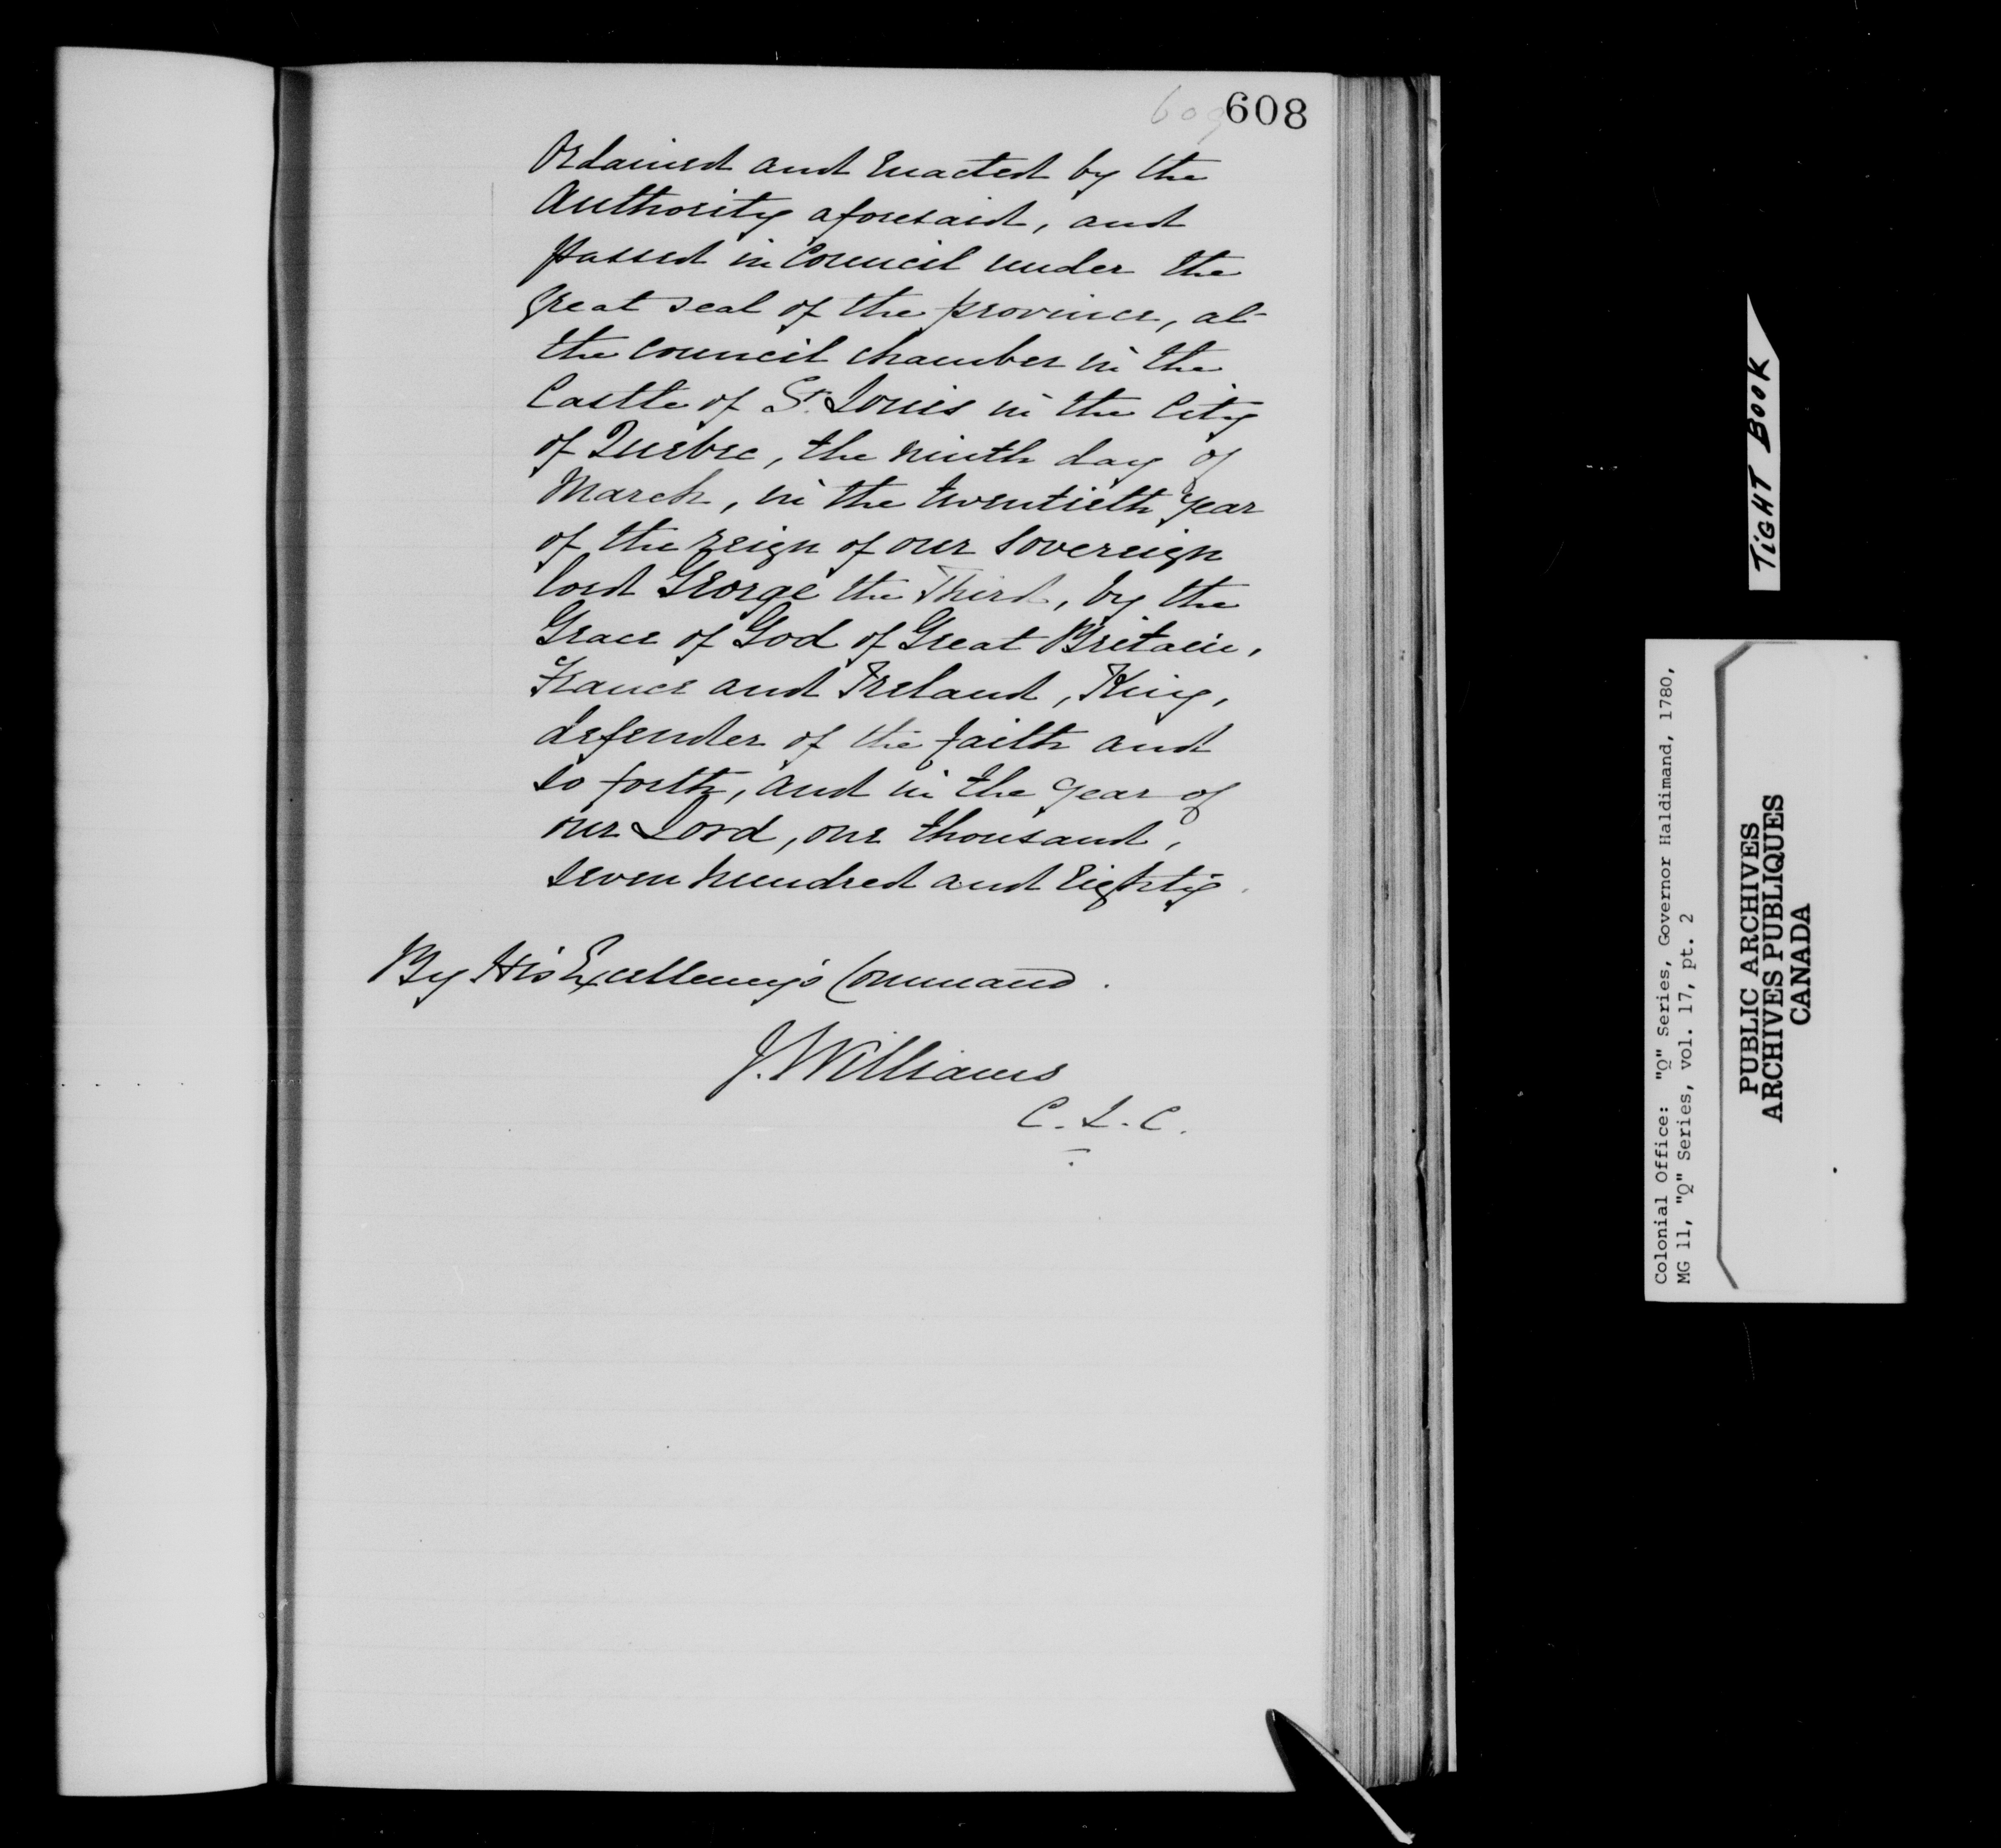 609 608
Ordained and Enacted by the
Authority aforesaid, and
passed in Council under the
great seal of the province, at
the Council chamber in the
Castle of St. Louis in the City
of Quebec, the ninth day of
March, in the twentieth year
of the reign of our Sovereign
lord George the Third, by the
Grace of God of Great Britain,
France and Ireland, King,
defender of the faith and
so forth, and in the year of
our Lord, one thousand,
seven hundred and Eighty.
By His Excellency's Command.
J. Williams
C. L. C.
TIGHT BOOK
Colonial Office: "Q" Series, Governor Haldimand, 1780,
MG 11, "Q" Series, vol. 17, pt. 2
PUBLIC ARCHIVES
ARCHIVES PUBLIQUES
CANADA